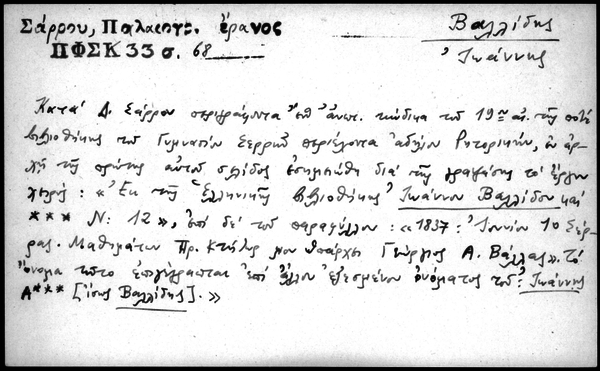 Σάρρου, Παλαιογρ. ἔρανος
ΠΦΣΚ 33 σ. 68
Βαλλίδης
Ἰωάννης
Κατὰ Δ. Σάρρον περιγράφοντα ὑπ' ἀνεπ. κώδικα τοῦ 19ου αἰ. τῆς ποτὲ
βιβλιοθήκης τοῦ Γυμνασίου Σερρῶν περιέχοντα ἀδήλου Ρητορικήν, ἐν ἀρ-
χῇ τῆς πρώτης αὐτοῦ σελίδος ἐσημειώθη διὰ τῆς γραψάσης τὸ ἔργον
χειρός: «Ἐκ τῆς Ἑλληνικῆς βιβλιοθήκης Ἰωάννου Βαλλίδου καὶ
*** Ν: 12», ἐπὶ δὲ τοῦ παραφύλλου: «1837: Ἰουνίου 10 Σέρ-
ρας. Μαθημάτων Πρ. κτῆμα μου ὑπάρχει Γεώργιος Α. Βάλλας». τὸ
ὄνομα τοῦτο ἐπιγέγραπται ἐπὶ ἄλλου ἐξεσμένου ὀνόματος τοῦ: Ἰωάννης
Α*** [ἴσως Βαλλίδης].»